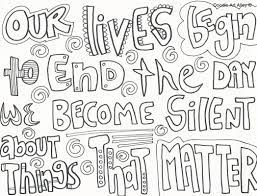 Doodle-Art-Alley©
OUR LIVES BEGIN
to END tHE DAY
WE BECOME SILENT
about
THINGS THAT MATTER